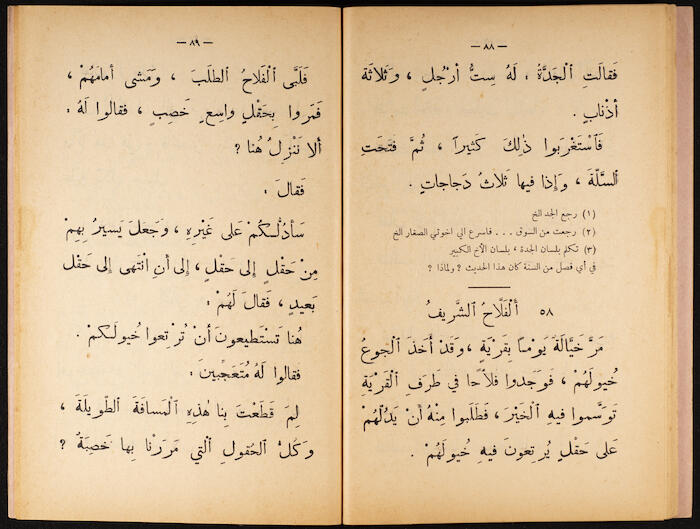 — ٨٨ —
فَقالَتِ ٱلْجَدَّةُ : لَهُ سِتُّ أَرْجُلٍ ، وَثَلاثَة
أذْنابٍ .
فَٱسْتَغْرَبوا ذٰلِكَ كَثيراً ، ثُمَّ فَتَحَتِ
السَّلَّةَ ، وَإذا فيها ثَلاثُ دَجاجاتٍ .
(١) رجع الجد الخ
(٢) رجعت من السوق ... فاسرع الي اخوتي الصغار الخ
(٣) تكلم بلسان الجدة ، بلسان الأخ الكبير
في أي فصل من السنة كان هذا الحديث ؟ ولماذا ؟
٥٨ أَلْفَلَّاحُ الشَّريفُ
مَرَّ خَيَّالَةٌ يَوْماً بِقَرْيَةٍ ، وَقَدْ أَخَذَ ٱلْجوعُ
خُيولَهُمْ ، فَوَجَدوا فَلاَّحاً في طَرَفِ ٱلْقَرْيَةِ
تَوَسَّموا فيهِ ٱلْخَيْرَ ، فَطَلَبوا مِنْهُ أنْ يَدُلَّهُمْ
عَلى حَقْلٍ يُرْتِعونَ فيهِ خُيولَهُمْ .
— ٨٩ —
فَلَبَّى ٱلْفَلاَّحُ الطَّلَبَ ، وَمَشى أمامَهُمْ ،
فَمَرّوا بِحَقْلٍ واسِعٍ خَصِبٍ ، فَقالوا لَهُ :
ألا نَنْزِلُ هُنا ؟
فَقالَ :
سَأدُلُّكُمْ عَلى غَيْرِهِ ، وَجَعَلَ يَسيرُ بِهِمْ
مِنْ حَقْلٍ إلى حَقْلٍ ، إلى أنِ انْتَهى إلى حَقْلٍ
بَعيدٍ ، فَقالَ لَهُمْ :
هُنا تَسْتَطيعونَ أنْ تُرْتِعوا خُيولَكُمْ .
فَقالوا لَهُ مُتَعَجِّبينَ :
لِمَ قَطَعْتَ بِنا هٰذِهِ ٱلْمَسافَةَ الطَّويلَةَ ،
وَكُلُّ ٱلْحُقولِ ٱلَّتي مَرَرْنا بِها خَصِبَةٌ ؟